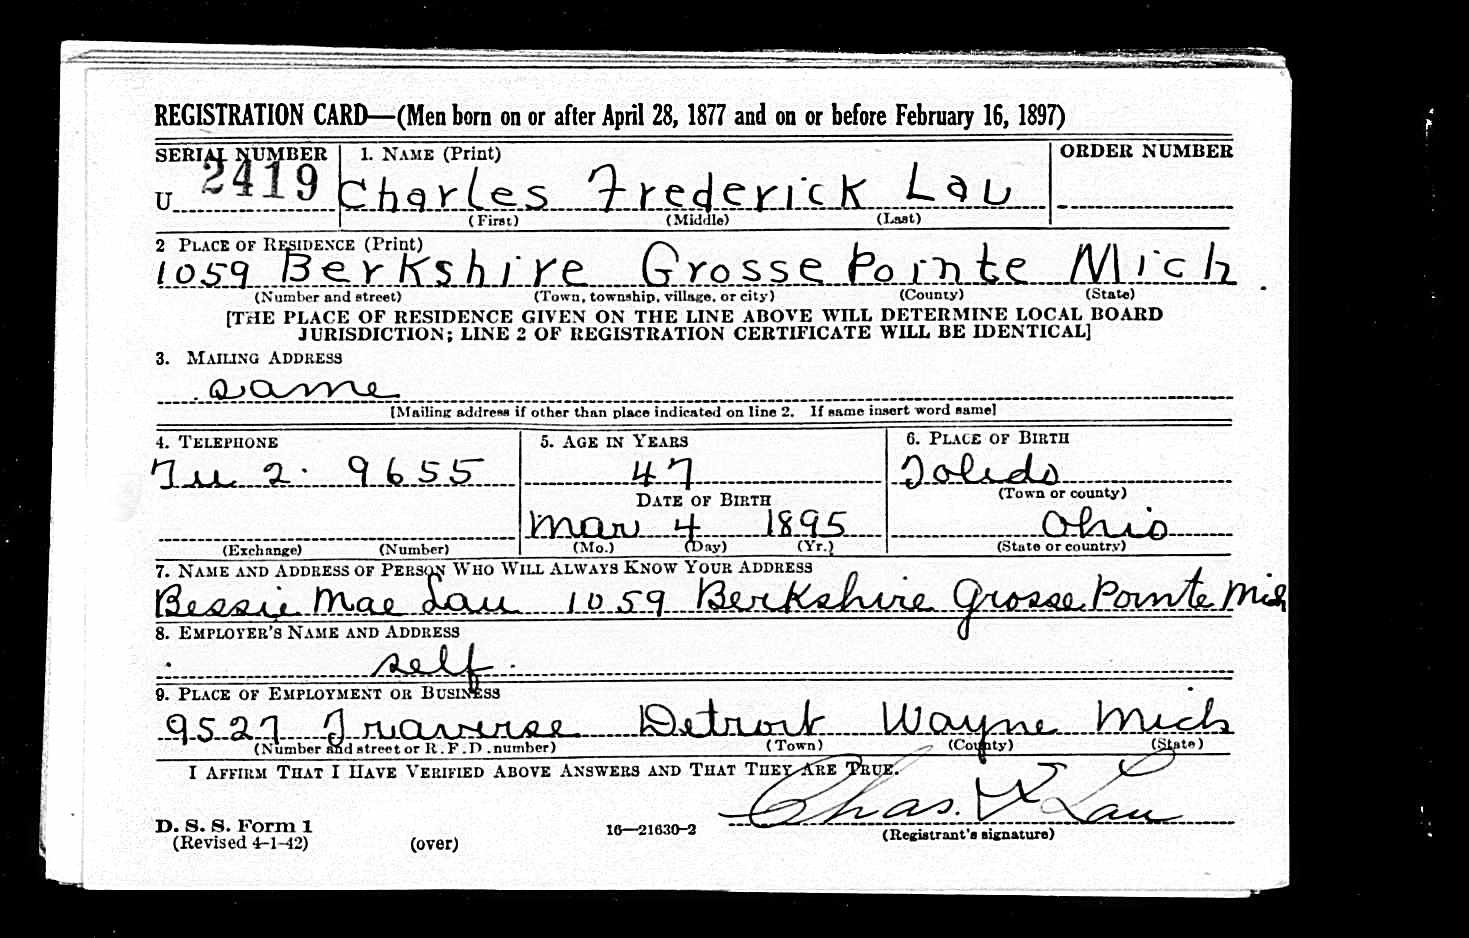 REGISTRATION CARD—(Men born on or after April 28, 1877 and on or before February 16, 1897)
SERIAL NUMBER 1. NAME (Print) ORDER NUMBER
U 2419 Charles Frederick Lau
(First) (Middle) (Last)
2 PLACE OF RESIDENCE (Print)
1059 Berkshire Grosse Pointe Mich
(Number and street) (Town, township, village, or city) (County) (State)
[THE PLACE OF RESIDENCE GIVEN ON THE LINE ABOVE WILL DETERMINE LOCAL BOARD
JURISDICTION; LINE 2 OF REGISTRATION CERTIFICATE WILL BE IDENTICAL]
3. MAILING ADDRESS
same
[Mailing address if other than place indicated on line 2. If same insert word same]
4. TELEPHONE 5. AGE IN YEARS 6. PLACE OF BIRTH
Tu 2. 9655 47 Toledo
DATE OF BIRTH (Town or county)
Mar 4 1895 Ohio
(Exchange) (Number) (Mo.) (Day) (Yr.) (State or country)
7. NAME AND ADDRESS OF PERSON WHO WILL ALWAYS KNOW YOUR ADDRESS
Bessie Mae Lau 1059 Berkshire Grosse Pointe Mich
8. EMPLOYER'S NAME AND ADDRESS
self.
9. PLACE OF EMPLOYMENT OR BUSINESS
9527 Traverse Detroit Wayne Mich
(Number and street or R. F. D. number) (Town) (County) (State)
I AFFIRM THAT I HAVE VERIFIED ABOVE ANSWERS AND THAT THEY ARE TRUE.
Chas. F Lau
D. S. S. Form 1 16—21630-2 (Registrant's signature)
(Revised 4-1-42) (over)